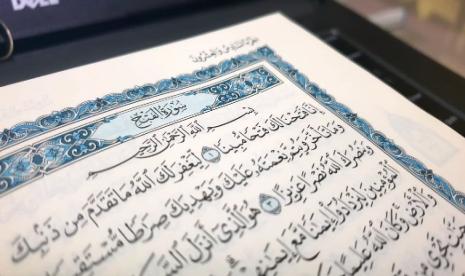 DELL
سُورَةُ الفَتْحِ
بِسْمِ اللَّهِ الرَّحْمَٰنِ الرَّحِيمِ
إِنَّا فَتَحْنَا لَكَ فَتْحًا مُّبِينًا ١ لِّيَغْفِرَ لَكَ ٱللَّهُ مَا تَقَدَّمَ مِن ذَنۢبِكَ
وَمَا تَأَخَّرَ وَيُتِمَّ نِعْمَتَهُۥ عَلَيْكَ وَيَهْدِيَكَ صِرَٰطًا مُّسْتَقِيمًا
وَيَنصُرَكَ ٱللَّهُ نَصْرًا عَزِيزًا ٣ هُوَ ٱلَّذِىٓ أَنزَلَ
ٱلْمُؤْمِنِينَ لِيَزْدَادُوٓا۟ إِيمَٰنًا مَّعَ إِيمَٰنِهِمْ
وَٱلْأَرْضِ وَكَانَ ٱللَّهُ عَلِيمًا
تَجْرِى